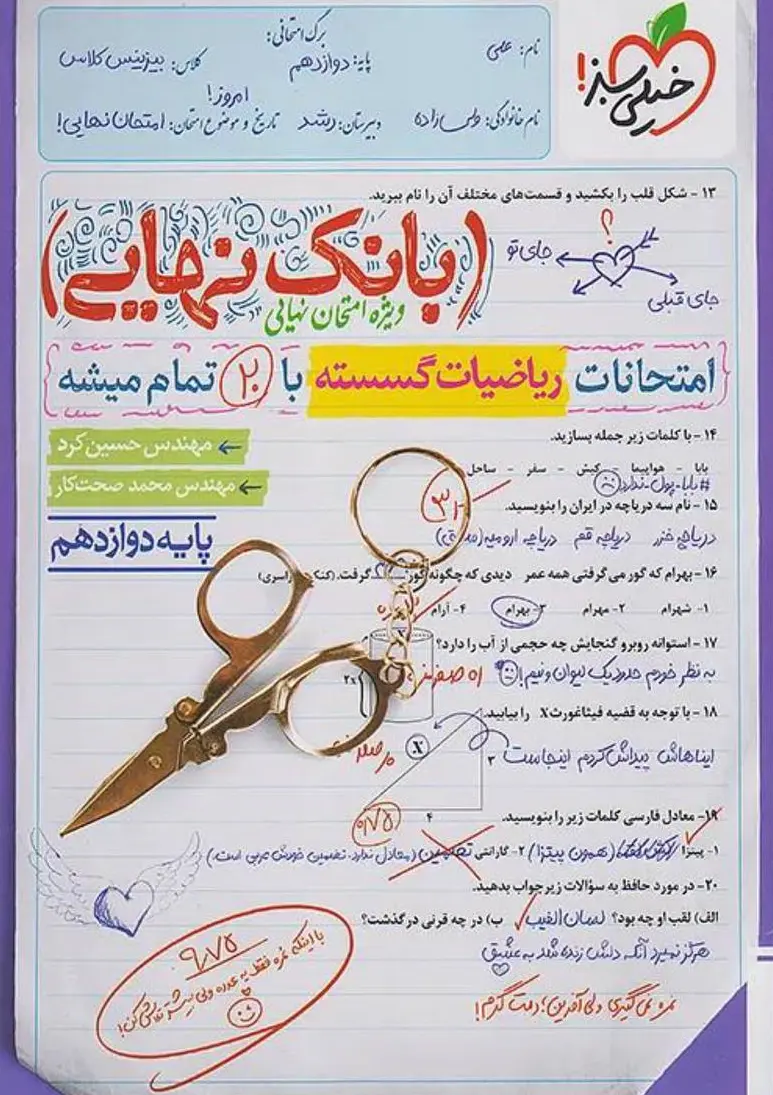 خیلی سبز!
برگ امتحانی:
نام: علی
پایه: دوازدهم
کلاس: بیزینس کلاس
نام خانوادگی: ولی زاده
دبیرستان: رشد
تاریخ و موضوع امتحان: امروز! امتحان نهایی!
۱۳ - شکل قلب را بکشید و قسمت‌های مختلف آن را نام ببرید.
؟
جای تو
جای قبلی
(بانک نهایی)
ویژه امتحان نهایی
امتحانات ریاضیات گسسته با ۲۰ تمام میشه
۱۴ - با کلمات زیر جمله بسازید.
← مهندس حسین کرد
بابا - هواپیما - کیش - سفر - ساحل
← مهندس محمد صحت‌کار
#بابا-پول-ندارد
۱۵ - نام سه دریاچه در ایران را بنویسید.
پایه دوازدهم
دریاچه خزر دریاچه قم دریاچه ارومیه
۱۶ - بهرام که گور می‌گرفتی همه عمر دیدی که چگونه گور گرفت.
۱- شهرام ۲- مهرام ۳- بهرام ۴- آرام
۱۷ - استوانه روبرو گنجایش چه حجمی از آب را دارد؟
X
2x
به نظر خودم حدود یک لیوان و نیم!
۱۸ - با توجه به قضیه فیثاغورث X را بیابید.
X
۳
ایناهاش پیداش کردم اینجاست
۴
۱۹ - معادل فارسی کلمات زیر را بنویسید.
۰/۷۵
۱- پیتزا (همون پیتزا) ۲- گارانتی تضمین (معادل ندارد. تضمین خودش عربی است.)
۲۰- در مورد حافظ به سؤالات زیر جواب بدهید.
الف) لقب او چه بود؟ لسان الغیب ب) در چه قرنی درگذشت؟
هرگز نمیرد آنکه دلش زنده شد به عشق
نمره نمی‌گیری ولی آفرین! دمت گرم!
۹/۷۵
با اینکه نمره فقط یه عدده ولی بیشتر تلاش کن!